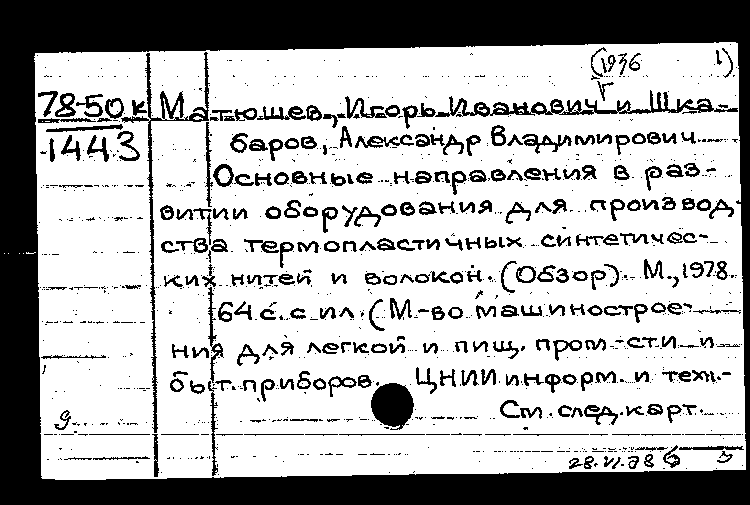 (1936 1)
г
78-50к Матюшев, Игорь Иванович и Шка-
1443 баров, Александр Владимирович
Основные направления в раз-
витии оборудования для производ-
ства термопластичных синтетичес-
ких нитей и волокон. (Обзор). М., 1978.
64 с. с ил. (М-во машинострое-
ния для легкой и пищ. пром-сти и
быт. приборов. ЦНИИ информ. и техн.-
См. след. карт.
9.
28.VI.78